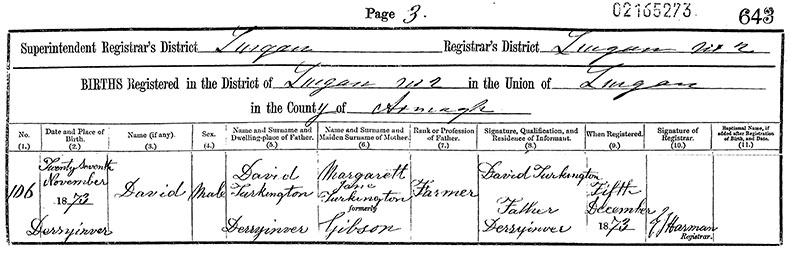 Page 3. 02165273. 643
Superintendent Registrar's District Lurgan Registrar's District Lurgan No 2
BIRTHS Registered in the District of Lurgan No 2 in the Union of Lurgan
in the County of Armagh
No. (1.)
Date and Place of Birth. (2.)
Name (if any). (3.)
Sex. (4.)
Name and Surname and Dwelling-place of Father. (5.)
Name and Surname and Maiden Surname of Mother. (6.)
Rank or Profession of Father. (7.)
Signature, Qualification, and Residence of Informant. (8.)
When Registered. (9.)
Signature of Registrar. (10.)
Baptismal Name, if added after Registration of Birth, and Date. (11.)
106
Twenty Seventh
November
1873
Derryinver
David
Male
David
Turkington
Derryinver
Margarett
Jane
Turkington
formerly
Gibson
Farmer
David Turkington
Father
Derryinver
Fifth
December
1873
Harman
Registrar.